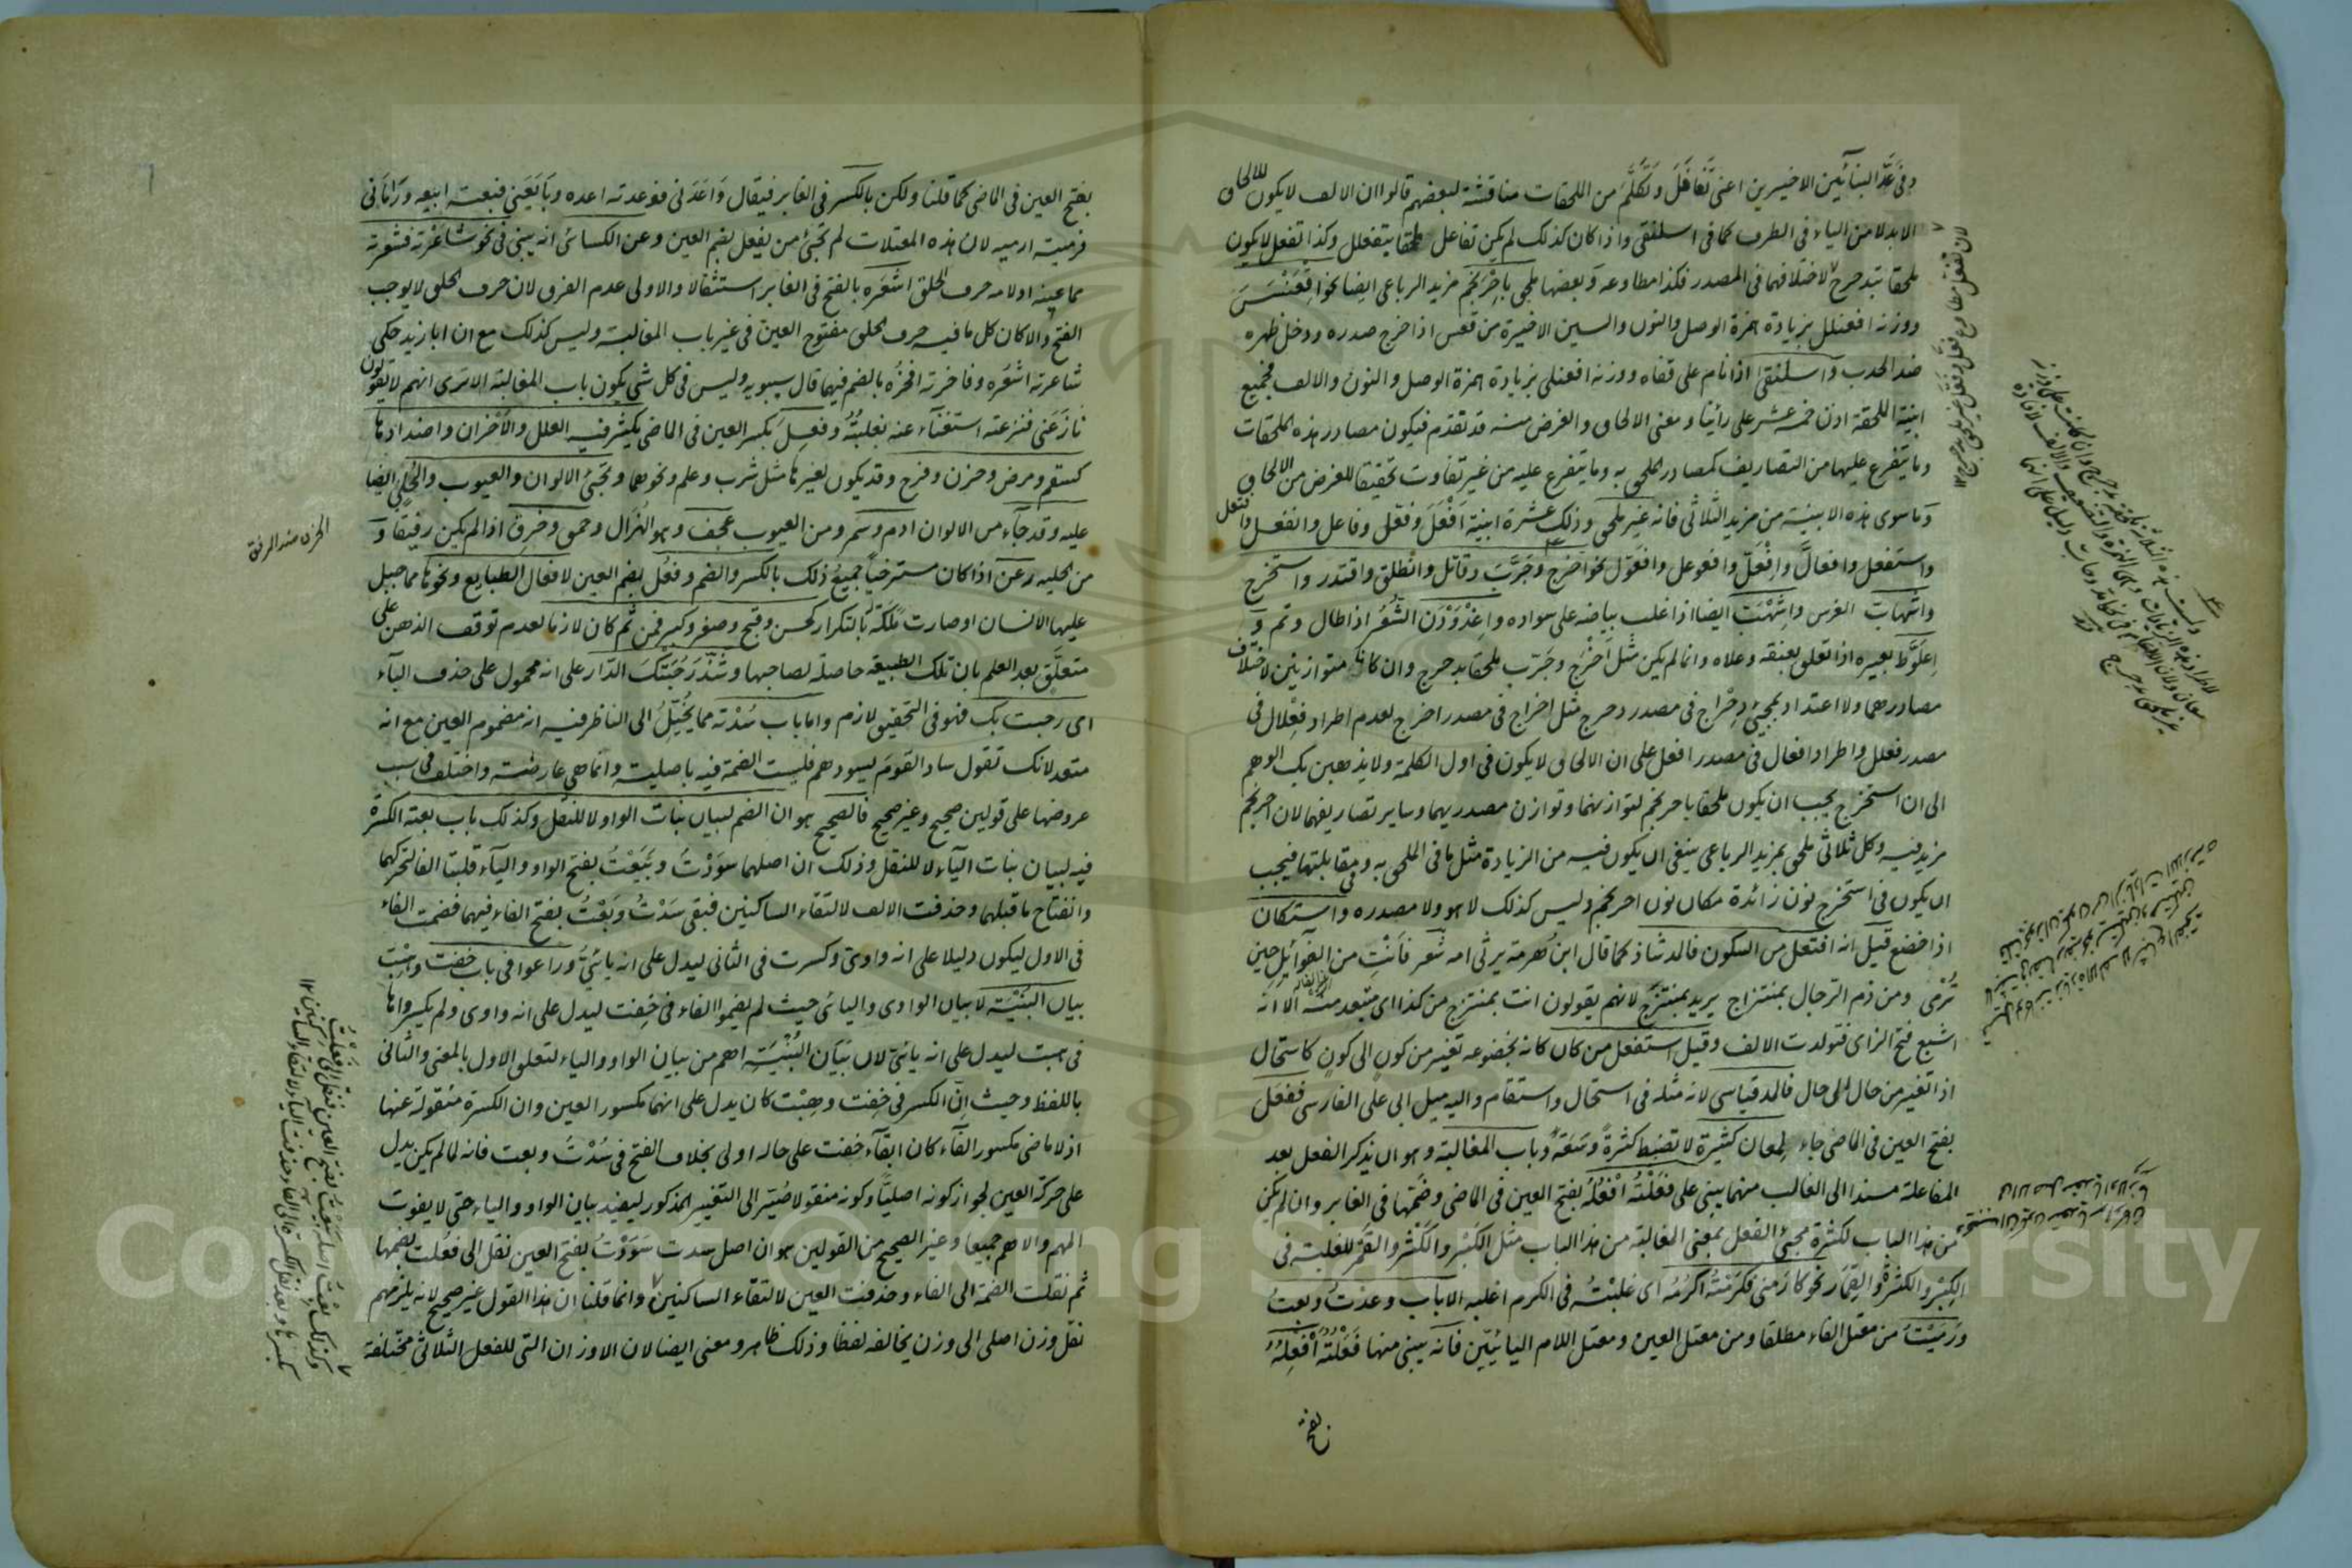 وفي عَدّ البنائين الاخيرين اعني تَغَافَلَ وتَكَلَّمَ من الملحقات مناقشة لبعضهم قالوا ان الالف لا يكون للالحاق
الا بدلا من الياء في الطرف كما في اسلنقى واذا كان كذلك لم يكن تفاعل ملحقا بتفعلل وكذا تفعل لا يكون
ملحقا بتدحرج لاختلافهما في المصدر فكذا مطاوعه وبعضها ملحق باِحْرَنْجَمَ مزيد الرباعي ايضا نحو اقْعَنْسَسَ
ووزنه افعنلل بزيادة همزة الوصل والنون والسين الاخيرة من قعس اذا خرج صدره ودخل ظهره
ضد الحدب واسلنقى اذا نام على قفاه ووزنه افعنلى بزيادة همزة الوصل والنون والالف فجميع
ابنية الملحقة اذن خمسة عشر على رأينا ومعنى الالحاق والغرض منه قد تقدم فيكون مصادر هذه الملحقات
وما يتفرع عليها من التصاريف كمصادر الملحق به وما يتفرع عليه من غير تفاوت تحقيقا للغرض من الالحاق
وما سوى هذه الابنية من مزيد الثلاثي فانه غير ملحق وذلك عشرة ابنية اَفْعَلَ وفعّل وفاعل وانفعل وافتعل
واستفعل وافعالّ وافْعَلّ وافعوعل وافعَوّل نحو اخرج وجَرَّبَ وقاتل وانطلق واقتدر واستخرج
واشهابّ الفرس واشْهَبّ ايضا اذا غلب بياضه على سواده واغْدَوْدَن الشَّعْرُ اذا طال وتم و
اعلَوَّط بعيره اذا تعلق بعنقه وعلاه وانما لم يكن مثل اَخْرَجَ وجَرّب ملحقا بدحرج وان كانا متوازنين لاختلاف
مصادرهما ولا اعتداد بمجيئ دِحْراج في مصدر دحرج مثل اخراج في مصدر اخرج لعدم اطراد فِعْلال في
مصدر فعلل واطراد افعال في مصدر افعل على ان الالحاق لا يكون في اول الكلمة ولا يذهبن بك الوهم
الى ان استخرج يجب ان يكون ملحقا باحرنجم لتوازنهما وتوازن مصدريهما وساير تصاريفهما لان احرنجم
مزيد فيه وكل ثلاثي ملحق بمزيد الرباعي ينبغي ان يكون فيه من الزيادة مثل ما في الملحق به وفي مقابلتها فيجب
ان يكون في استخرج نون زائدة مكان نون احرنجم وليس كذلك لا هو ولا مصدره واستكان
اذا خضع قيل انه افتعل من السكون فالمد شاذ كما قال ابن هَرمة يرثي ابنه شعر فَاَنْتَ من الغوائل حين
تُرْمى ومن ذم الرجال بمنتزاح يريد بمنتزح لانهم يقولون انت بمنتزح من كذا اي متبعد منه الا انه
اشبع فتح الزاى فتولدت الالف وقيل استفعل من كان كانه بخضوعه تغير من كون الى كون كاستحال
اذا تغير من حال الى حال فالمد قياسي لانه مثله في استحال واستقام واليه ميل ابي علي الفارسي ففعَل
بفتح العين في الماضي جاء لمعان كثيرة لا تضبط كثرةً وسَعَةً وباب المغالبة وهو ان يذكر الفعل بعد
المفاعلة مسندا الى الغالب منهما يبنى على فَعَلْتُه اَفْعُلُه بفتح العين في الماضي وضمّها في الغابر وان لم يكن
من هذا الباب لكثرة مجيئ الفعل بمعنى المغالبة من هذا الباب مثل الكَبْر والكَثْر والقَمْر للغلبة في
الكِبْر والكثرة والقِمَار نحو كارَمَني فكَرَمْتُه اَكْرُمُه اي غلبْتُه في الكرم اغلبه الا باب وعدتُ وبعتُ
ورَمَيْتُ من معتل الفاء مطلقا ومن معتل العين ومعتل اللام اليائيّين فانه يبنى منها فَعَلْتُه اَفْعِلُه
بفتح
بفتح العين في الماضي كما قلنا ولكن بالكسر في الغابر فيقال وَاعَدَني فوعدته اعده وبَايَعَني فبعته ابيعه ورَامَاني
فرميته ارميه لان هذه المعتلات لم تجئ من يفعل بضم العين وعن الكسائي انه يبنى في نحو شاعَرْته فشعرته
مما عينه او لامه حرف الحلق اشعَره بالفتح في الغابر استثقالا والاولى عدم الفرق لان حرف الحلق لا يوجب
الفتح والا كان كل ما فيه حرف الحلق مفتوح العين في غير باب المغالبة وليس كذلك مع ان ابا زيد حكى
شاعرته اشعُره وفاخرته افخرُه بالضم فيهما قال سيبويه وليس في كل شي يكون باب المغالبة الا ترى انهم لا يقولون
نازَعَني فنزعته استغناء عنه بغلبتُه وفعِلَ بكسر العين في الماضي يكثر فيه العلل والاحزان واضدادها
كسقم ومرض وحزن وفرح وقد يكون لغيرها مثل شرب وعلم ونحوهما وتجيئ الالوان والعيوب والحِلي ايضا
عليه وقد جاء من الالوان ادم وسمر ومن العيوب عجف وهو الهُزال وحمق وخرق اذا لم يكن رفيقا و
من الحلية رعن اذا كان مسترخيا جميع ذلك بالكسر والضم وفعُل بضم العين لافعال الطبايع ونحوها مما جبل
عليها الانسان او صارت مَلَكة بالتكرار كحسن وقبح وصغر وكبر فمن ثم كان لازما لعدم توقف الذهن على
متعلَّق بعد العلم بان تلك الطبيعة حاصلة لصاحبها وشذّ رَحُبَتْكَ الدّار على انه محمول على حذف الباء
اى رحبت بك فهو في التحقيق لازم واما باب سُدْته مما يُخَيَّلُ الى الناظر فيه انه مضموم العين مع انه
متعد لانك تقول ساد القومَ يسودهم فليست الضمة فيه باصلية وانما هي عارضة واختلف في سبب
عروضها على قولين صحيح وغير صحيح فالصحيح هو ان الضم لبيان بنات الواو لا للنقل وكذلك باب بعته الكسرة
فيه لبيان بنات الياء لا للنقل وذلك ان اصلهما سوَدْتُ وبَيَعْتُ بفتح الواو والياء قلبتا الفا لتحركهما
وانفتاح ما قبلهما وحذفت الالف لالتقاء الساكنين فبقى سَدْتُ وبَعْتُ بفتح الفاء فيهما فضمت الفاء
في الاول ليكون دليلا على انه واوي وكسرت في الثاني ليدل على انه يائيّ وراعوا في باب خفت وهِبْت
بيان البُنْيَة لا بيان الواوي واليائي حيث لم يضموا الفاء في خِفت ليدل على انه واوى ولم يكسروها
في هبت ليدل على انه يائيّ لان بَيَان البُنْيَة اهم من بيان الواو والياء لتعلق الاول بالمعنى والثاني
باللفظ وحيث ان الكسر في خِفت وهِبْت كان يدل على انهما مكسور العين وان الكسرة منقولة عنها
اذ لا ماضي مكسور الفاء كان ابقاء خفت على حاله اولى بخلاف الفتح في سُدْتُ وبعت فانه لما لم يكن يدل
على حركة العين لجواز كونه اصليًّا وكونه منقولا صُيّر الى التغيير المذكور ليفيد بيان الواو والياء حتى لا يفوت
المهم والاهم جميعا وغير الصحيح من القولين هو ان اصل سدت سَوَدْتُ بفتح العين نقل الى فعُلت بضمها
ثم نقلت الضمة الى الفاء وحذفت العين لالتقاء الساكنين وانما قلنا ان هذا القول غير صحيح لانه يلزمهم
نقل وزن اصلي الى وزن يخالفه لفظا وذلك ظاهر ومعنى ايضا لان الاوزان التي للفعل الثلاثي مختلفة
الخرق ضد الرفق
Copyright © King Saud University